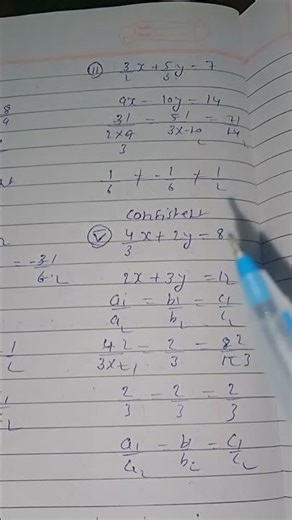 (ii) 3/2 x + 5/3 y = 7
9x - 10y = 14
3/(2×9) = 5/(3×-10) = 7/14
1/6 ≠ -1/6 ≠ 1/2
Consistent
(v) 4/3 x + 2y = 8
2x + 3y = 12
a1/a2 = b1/b2 = c1/c2
4/(3×2) = 2/3 = 8/12
2/3 = 2/3 = 2/3
a1/a2 = b1/b2 = c1/c2
8/9
= -3/6